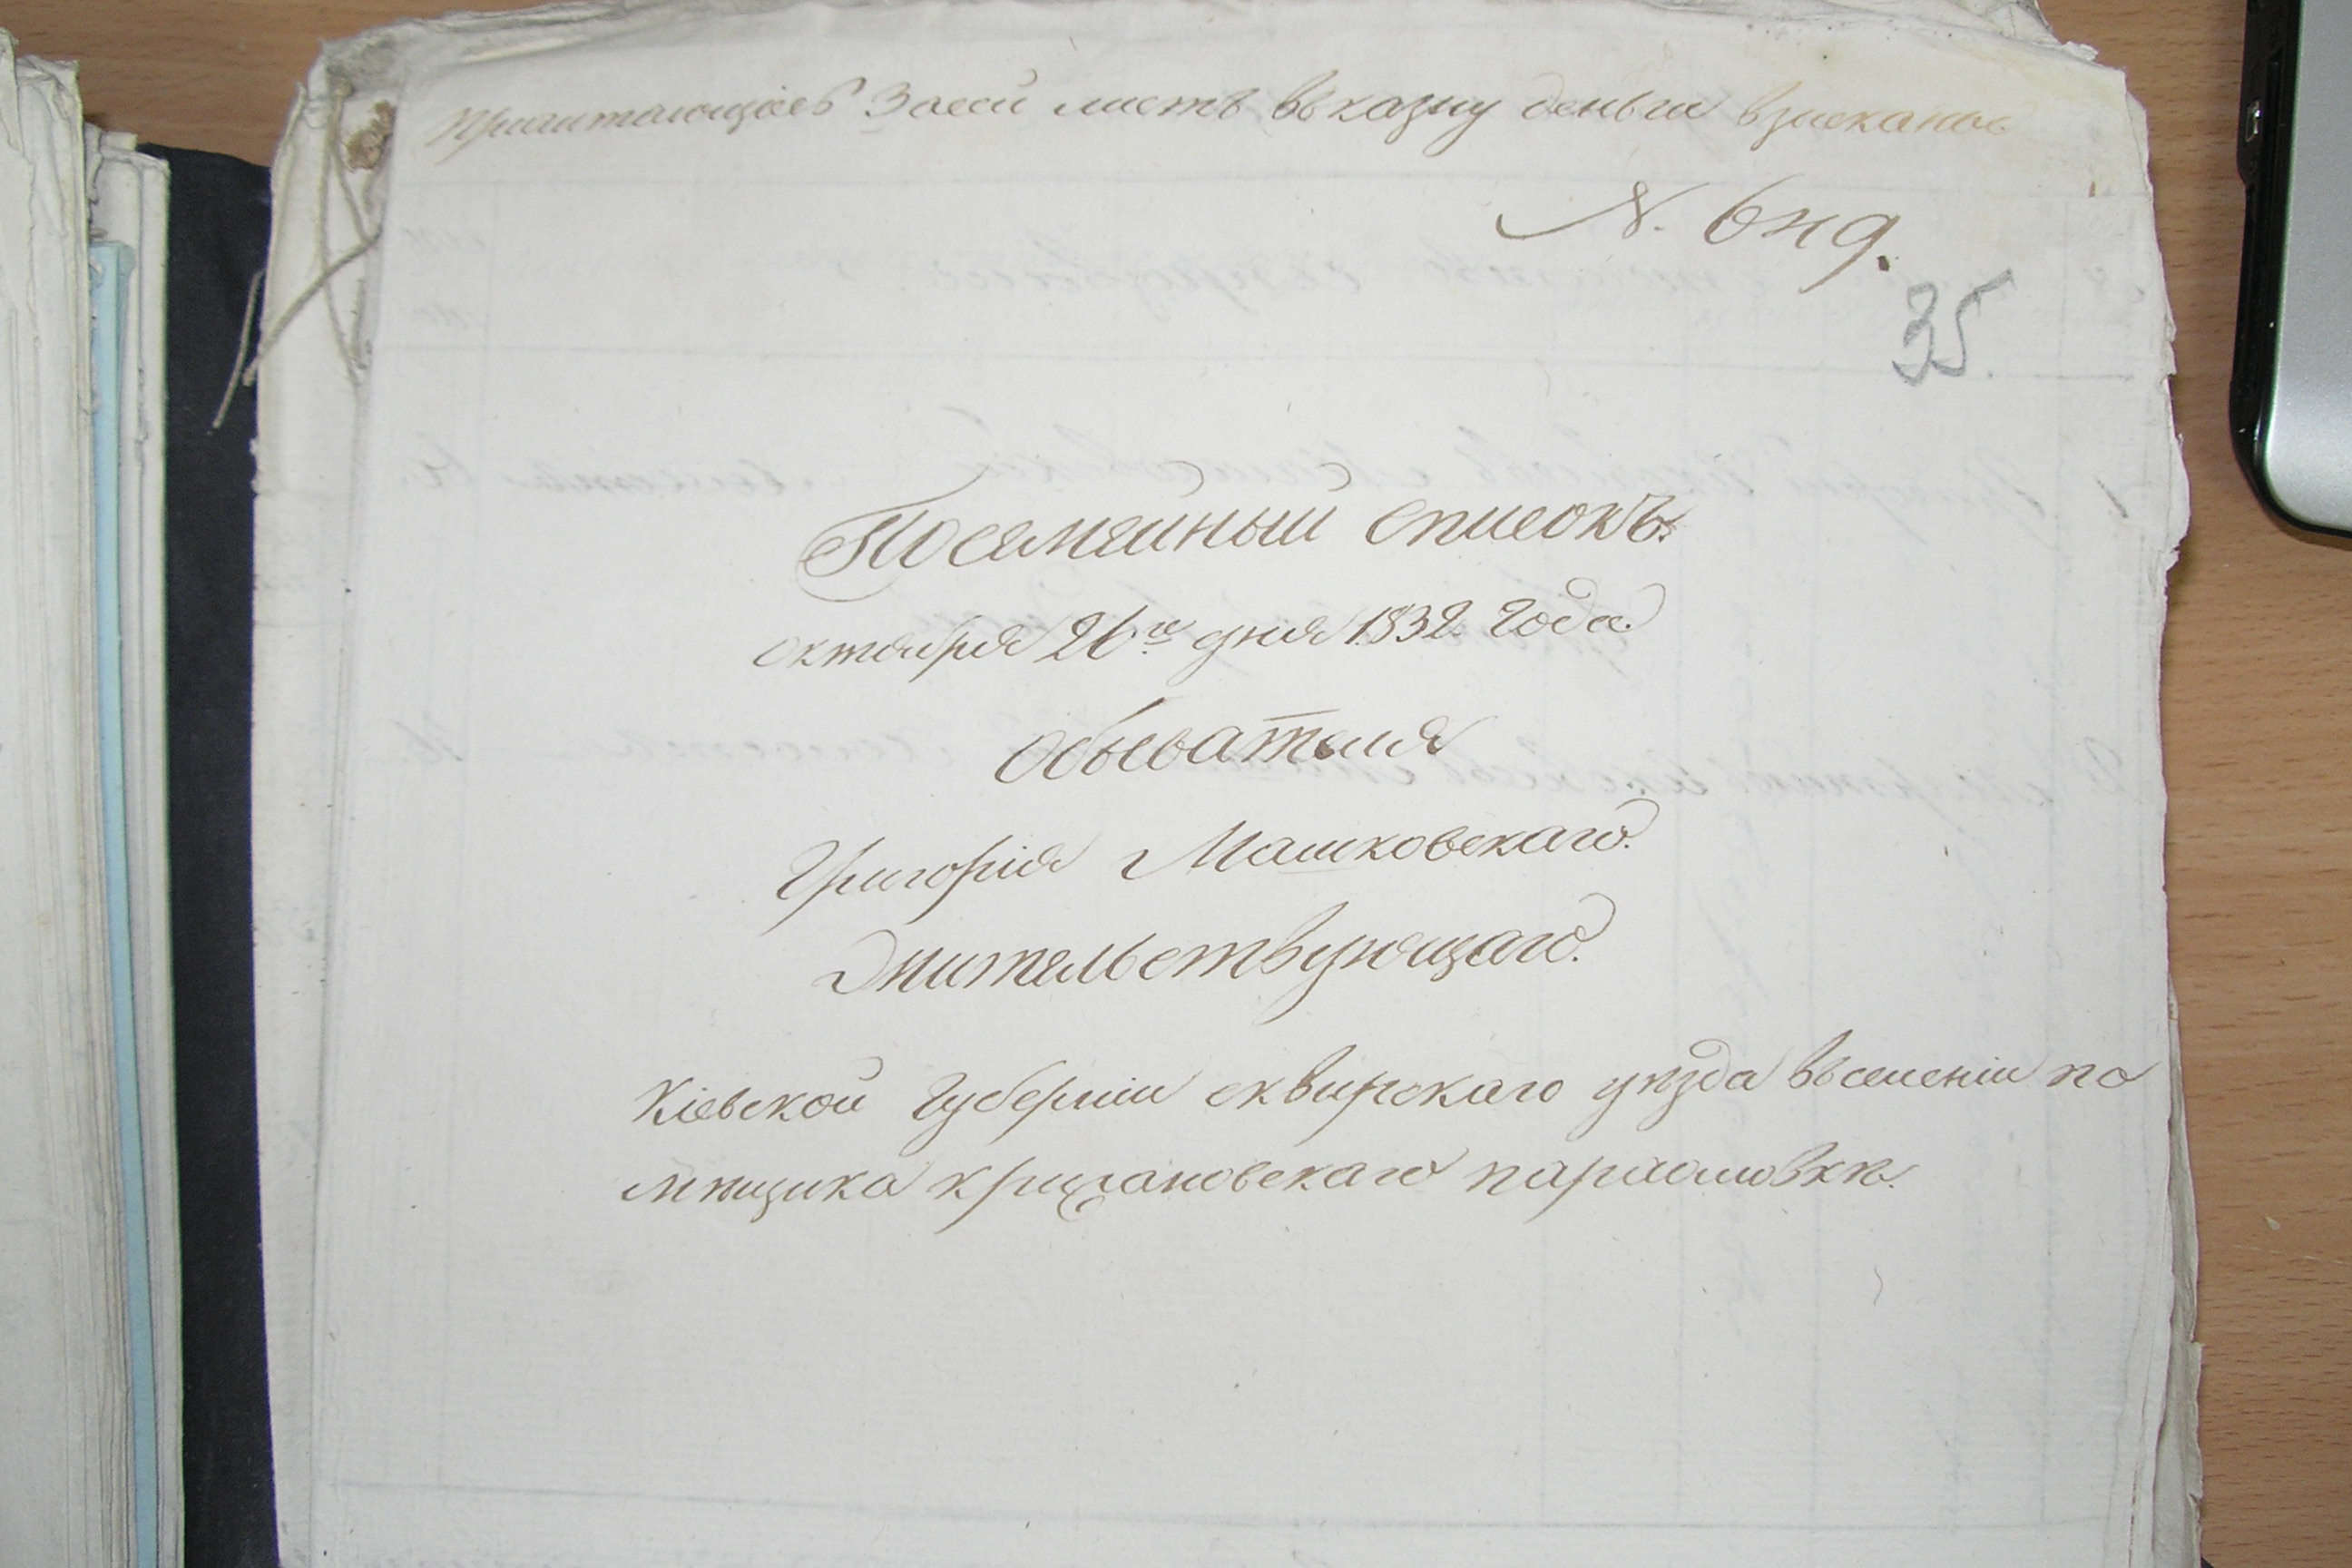 Причитающіесь Засей листъ въказну деньги взысканы.
N. 6
35
Посемейный списокъ.
октября 26го дня 1832. Года.
Обывателя
Григорія Машковскаго.
Жительствующаго.
Кіевской Губерніи сквирскаго уѣзда вьселеніи по
мѣщика парасловки.